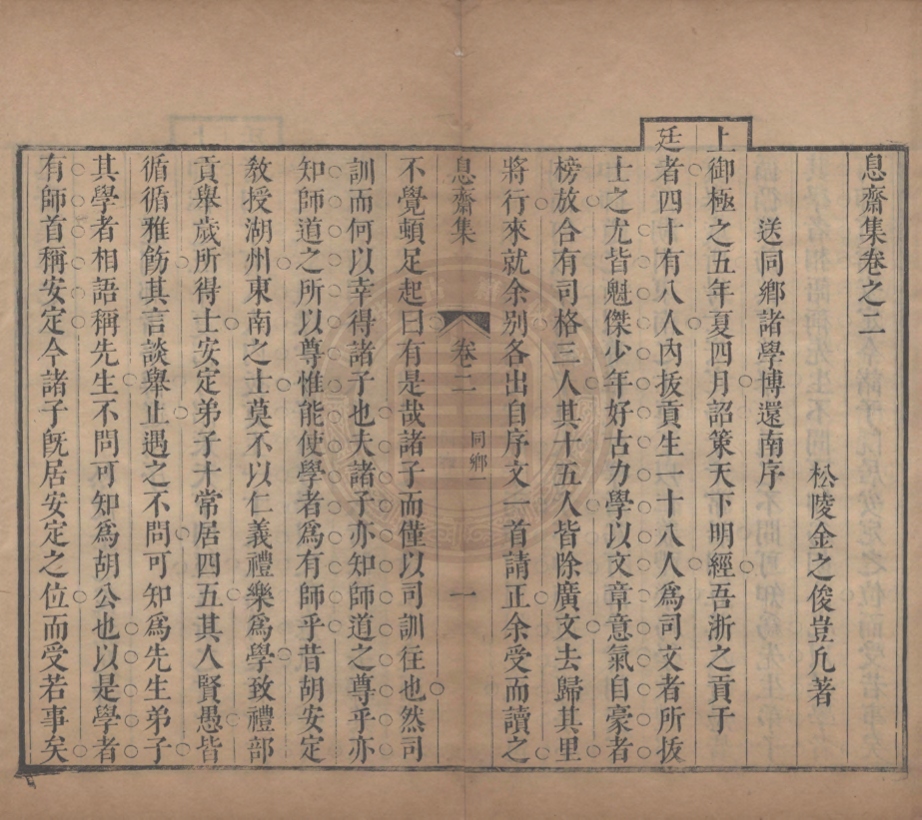 息齋集卷之二
松陵金之俊豈凡著
送同鄉諸學博還南序
上御極之五年夏四月詔策天下明經吾浙之貢于
廷者四十有八人內拔貢生一十八人爲司文者所拔
士之尤皆魁傑少年好古力學以文章意氣自豪者
榜放合有司格三人其十五人皆除廣文去歸其里
將行來就余別各出自序文一首請正余受而讀之
息齋集
卷二
同鄉一
一
不覺頓足起曰有是哉諸子而僅以司訓往也然司
訓而何以幸得諸子也夫諸子亦知師道之尊乎亦
知師道之所以尊惟能使學者爲有師乎昔胡安定
敎授湖州東南之士莫不以仁義禮樂爲學致禮部
貢舉歲所得士安定弟子十常居四五其人賢愚皆
循循雅飭其言談舉止遇之不問可知爲先生弟子
其學者相語稱先生不問可知爲胡公也以是學者
有師首稱安定今諸子旣居安定之位而受若事矣